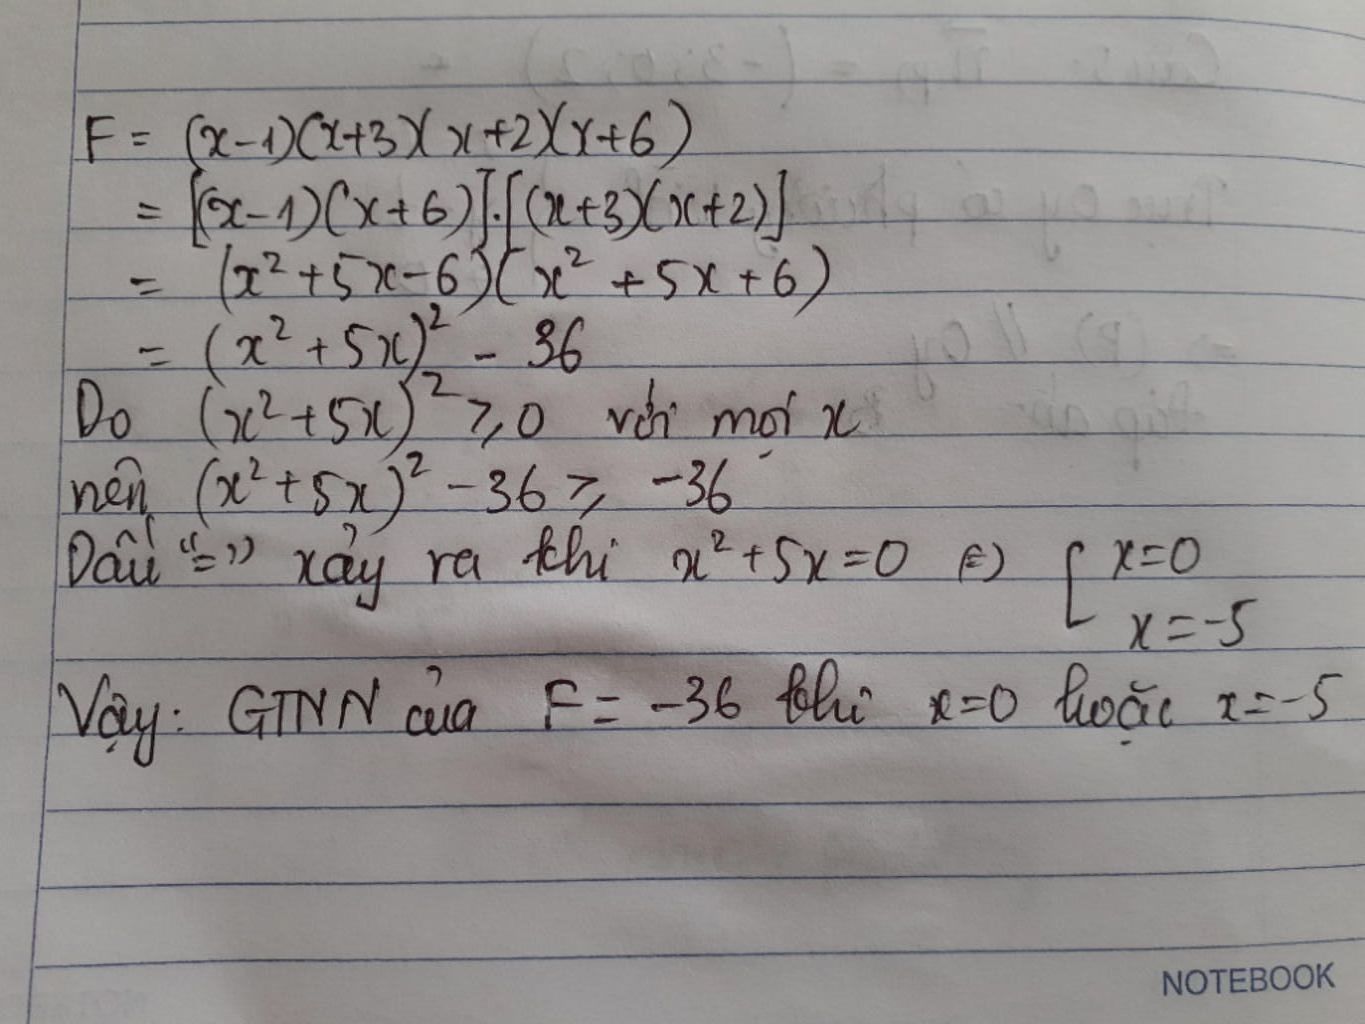 F = (x-1)(x+3)(x+2)(x+6)
= [(x-1)(x+6)].[(x+3)(x+2)]
= (x²+5x-6)(x²+5x+6)
= (x²+5x)² - 36
Do (x²+5x)² ≥ 0 với mọi x
nên (x²+5x)² - 36 ≥ -36
Dấu "=" xảy ra khi x²+5x=0 ⇔ [ x=0
x=-5
Vậy: GTNN của F = -36 khi x=0 hoặc x=-5
NOTEBOOK